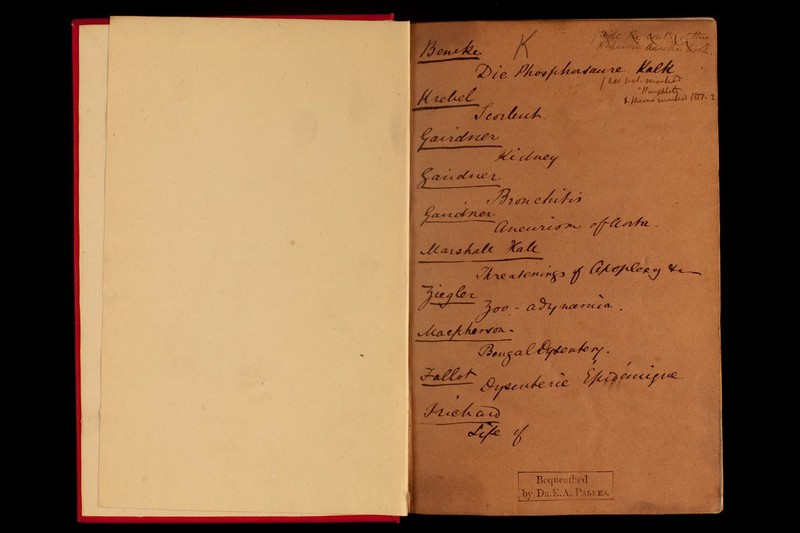 Beneke K
Die Phosphorsaure Kalk
Krebel
Scorbut.
Gairdner
Kidney
Gairdner
Bronchitis
Gairdner
Aneurism of Aorta.
Marshall Hall
Threatenings of Apoplexy &c
Ziegler
Zoo-adynamia.
Macpherson.
Bengal Dysentery.
Fallot
Dysenterie Épidémique
Prichard
Life of
Bequeathed
by Dr. E.A. Parkes.